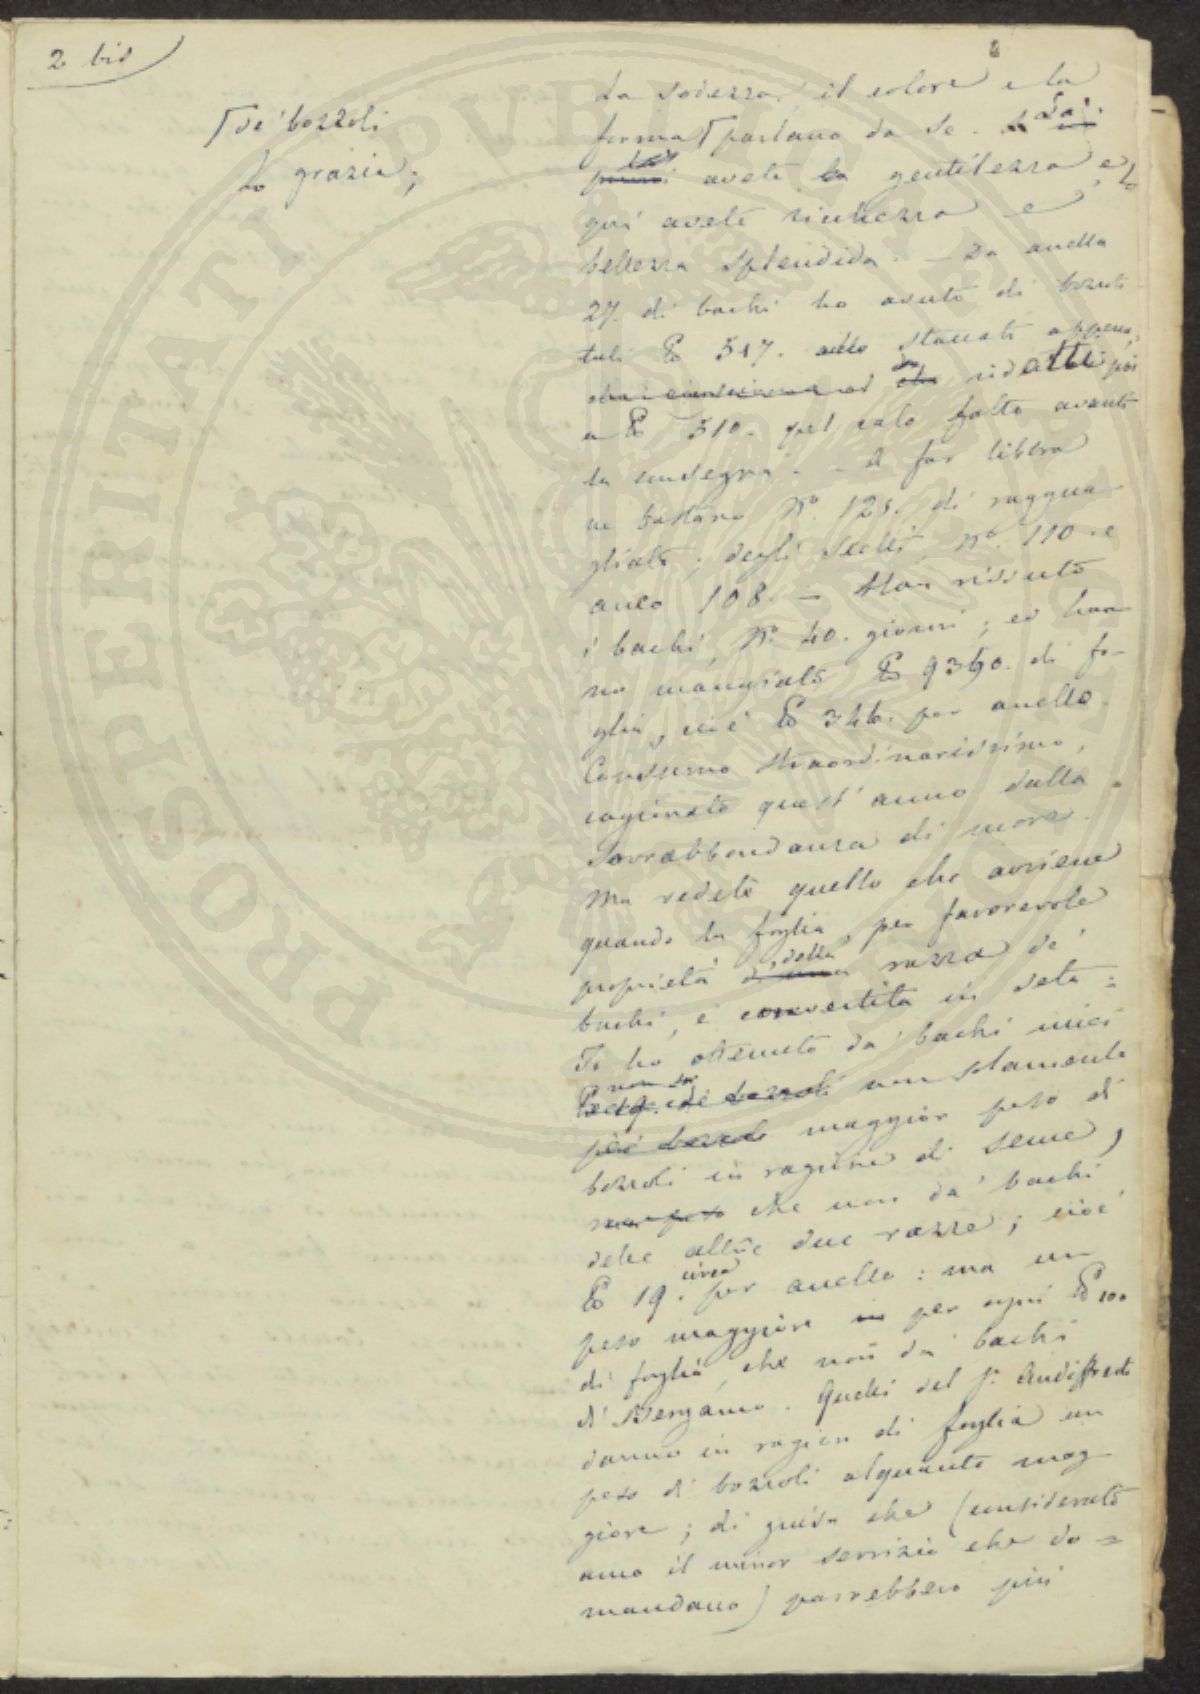 2 bis
8
⌈de' bozzoli
la grazia;
La sodezza, il colore e la
forma⌈ parlano da se. Là
avete la gentilezza, e
quì avete ricchezza e
bellezza splendida. — Da anella
27. di bachi ho avuto di bozzoli
tali ℔ 517. staccati appena,
ridotti poi
a ℔ 510. pel calo fatto avanti
la consegna. — A far libbra
ne bastano N.º 125. di raggua-
gliati; degli scelti N.º 110. e
anco 108. — Han vissuto
i bachi N.º 40. giorni; ed han-
no mangiato ℔ 9340. di fo-
glia, cioè ℔ 346. per anello.
Consumo straordinarissimo,
cagionato quest'anno dalla
sovrabbondanza di more.
Ma vedete quello che avviene
quando la foglia, per favorevole
proprietà della razza de'
bachi, è convertita in seta:
Io ho ottenuto da' bachi miei
non solamente
maggior peso di
bozzoli in ragione di seme,
che non da' bachi
delle altre due razze; cioè
℔ 19. circa per anello: ma un
peso maggiore per ogni ℔ 100
di foglia, che non da' bachi
di Bergamo. Quelli del S.r Audiffredi
danno in ragion di foglia un
peso di bozzoli alquanto mag-
giore; di guisa che (considerato
anco il minor servizio che do=
mandano) parrebbero più